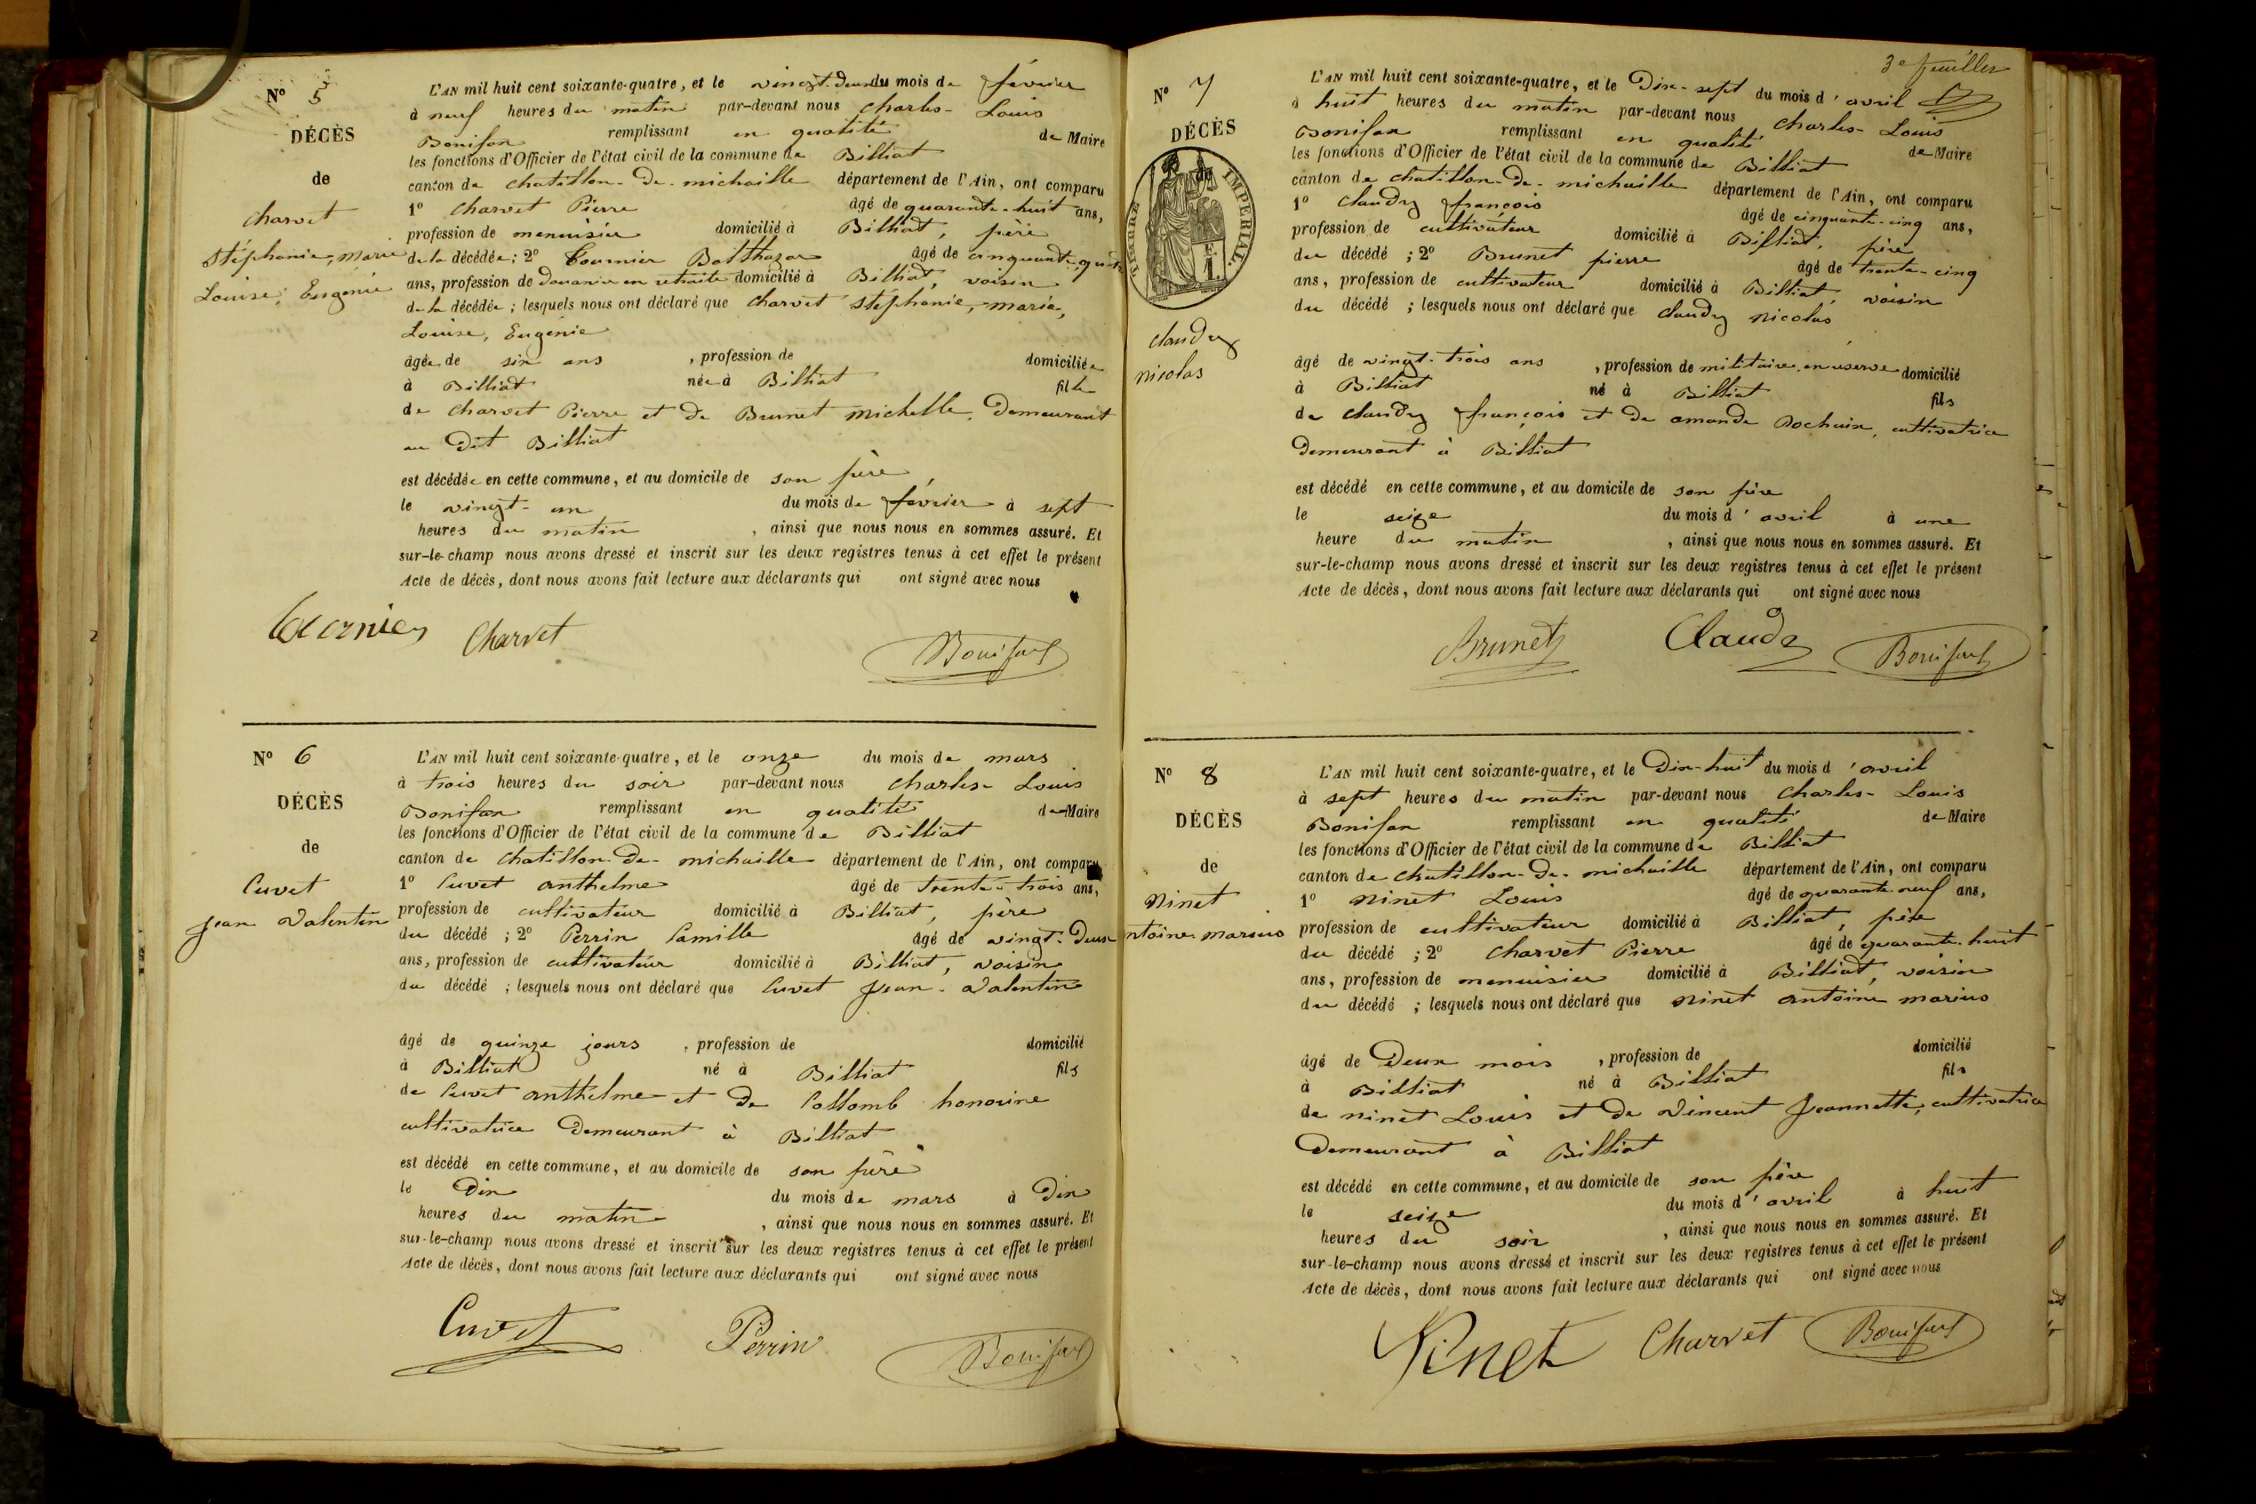 Nº 5
DÉCÈS
de
Charvet
Stéphanie, Marie
Louise, Eugénie
L'AN mil huit cent soixante-quatre, et le vingt-deux du mois de février
à neuf heures du matin par-devant nous Charles-Louis
Bonifax remplissant en qualité de Maire
les fonctions d'Officier de l'état civil de la commune de Billiat
canton de Chatillon-de-michaille département de l'Ain, ont comparu
1º Charvet Pierre âgé de quarante-huit ans,
profession de menuisier domicilié à Billiat, père
de la décédée; 2º Tournier Balthazar âgé de cinquante-quatre
ans, profession de douanier en retraite domicilié à Billiat, voisin
de la décédée; lesquels nous ont déclaré que Charvet Stéphanie, Marie,
Louise, Eugénie
âgée de six ans, profession de domiciliée
à Billiat née à Billiat fille
de Charvet Pierre et de Brunet Michelle, Demeurant
au dit Billiat
est décédée en cette commune, et au domicile de son père
le vingt-un du mois de février à sept
heures du matin, ainsi que nous nous en sommes assuré. Et
sur-le-champ nous avons dressé et inscrit sur les deux registres tenus à cet effet le présent
Acte de décès, dont nous avons fait lecture aux déclarants qui ont signé avec nous
Charvet Bonifax
Nº 6
DÉCÈS
de
Cuvet
Jean Valentin
L'AN mil huit cent soixante-quatre, et le onze du mois de mars
à trois heures du soir par-devant nous Charles-Louis
Bonifax remplissant en qualité de Maire
les fonctions d'Officier de l'état civil de la commune de Billiat
canton de Chatillon-de-michaille département de l'Ain, ont comparu
1º Cuvet Anthelme âgé de trente-trois ans,
profession de cultivateur domicilié à Billiat, père
du décédé; 2º Perrin Camille âgé de vingt-deux
ans, profession de cultivateur domicilié à Billiat, voisin
du décédé; lesquels nous ont déclaré que Cuvet Jean-Valentin
âgé de quinze jours, profession de domicilié
à Billiat né à Billiat fils
de Cuvet Anthelme et de Collomb honorine
cultivatrice Demeurant à Billiat
est décédé en cette commune, et au domicile de son père
le Dix du mois de mars à Dix
heures du matin, ainsi que nous nous en sommes assuré. Et
sur-le-champ nous avons dressé et inscrit sur les deux registres tenus à cet effet le présent
Acte de décès, dont nous avons fait lecture aux déclarants qui ont signé avec nous
Cuvet Perrin Bonifax
3e feuillet
Nº 7
DÉCÈS
de
TIMBRE IMPERIAL
E
1
Claudy
nicolas
L'AN mil huit cent soixante-quatre, et le Dix-sept du mois d'avril
à huit heures du matin par-devant nous Charles-Louis
Bonifax remplissant en qualité de Maire
les fonctions d'Officier de l'état civil de la commune de Billiat
canton de Chatillon-de-michaille département de l'Ain, ont comparu
1º Claudy françois âgé de cinquante-cinq ans,
profession de cultivateur domicilié à Billiat, père
du décédé; 2º Brunet pierre âgé de trente-cinq
ans, profession de cultivateur domicilié à Billiat, voisin
du décédé; lesquels nous ont déclaré que Claudy Nicolas
âgé de vingt-trois ans, profession de militaire en réserve domicilié
à Billiat né à Billiat fils
de Claudy françois et de amanda Rochaix, cultivatrice
Demeurant à Billiat
est décédé en cette commune, et au domicile de son père
le seize du mois d'avril à une
heure du matin, ainsi que nous nous en sommes assuré. Et
sur-le-champ nous avons dressé et inscrit sur les deux registres tenus à cet effet le présent
Acte de décès, dont nous avons fait lecture aux déclarants qui ont signé avec nous
Brunet Claudy Bonifax
Nº 8
DÉCÈS
de
Ninet
ntoine marius
L'AN mil huit cent soixante-quatre, et le Dix-huit du mois d'avril
à sept heures du matin par-devant nous Charles-Louis
Bonifax remplissant en qualité de Maire
les fonctions d'Officier de l'état civil de la commune de Billiat
canton de Chatillon-de-michaille département de l'Ain, ont comparu
1º Ninet Louis âgé de quarante-neuf ans,
profession de cultivateur domicilié à Billiat, père
du décédé; 2º Charvet Pierre âgé de quarante-huit
ans, profession de menuisier domicilié à Billiat, voisin
du décédé; lesquels nous ont déclaré que Ninet antoine marius
âgé de Deux mois, profession de domicilié
à Billiat né à Billiat fils
de ninet Louis et de Vincent Jeannette, cultivatrice
Demeurant à Billiat
est décédé en cette commune, et au domicile de son père
le seize du mois d'avril à huit
heures du soir, ainsi que nous nous en sommes assuré. Et
sur-le-champ nous avons dressé et inscrit sur les deux registres tenus à cet effet le présent
Acte de décès, dont nous avons fait lecture aux déclarants qui ont signé avec nous
Ninet Charvet Bonifax